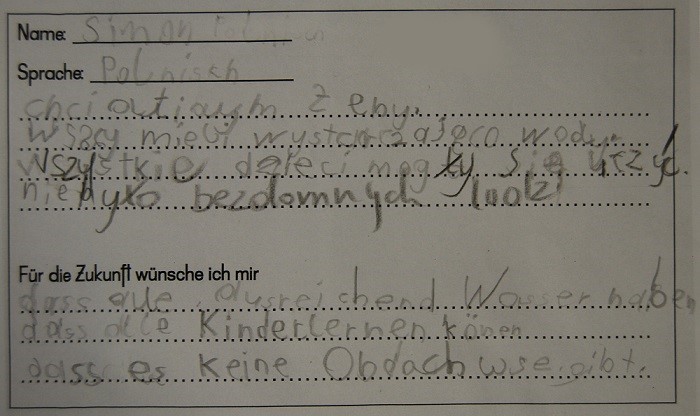 Name: Simon
Sprache: Polnisch
chciałbym żeby
wszy mieli wystarczająco wody.
wszystkie dzieci mogły się uczyć.
nie było bezdomnych ludzi
Für die Zukunft wünsche ich mir
dass alle ausreichend Wasser haben
dass alle Kinder lernen könen
dass es keine Obdach wse gibt.